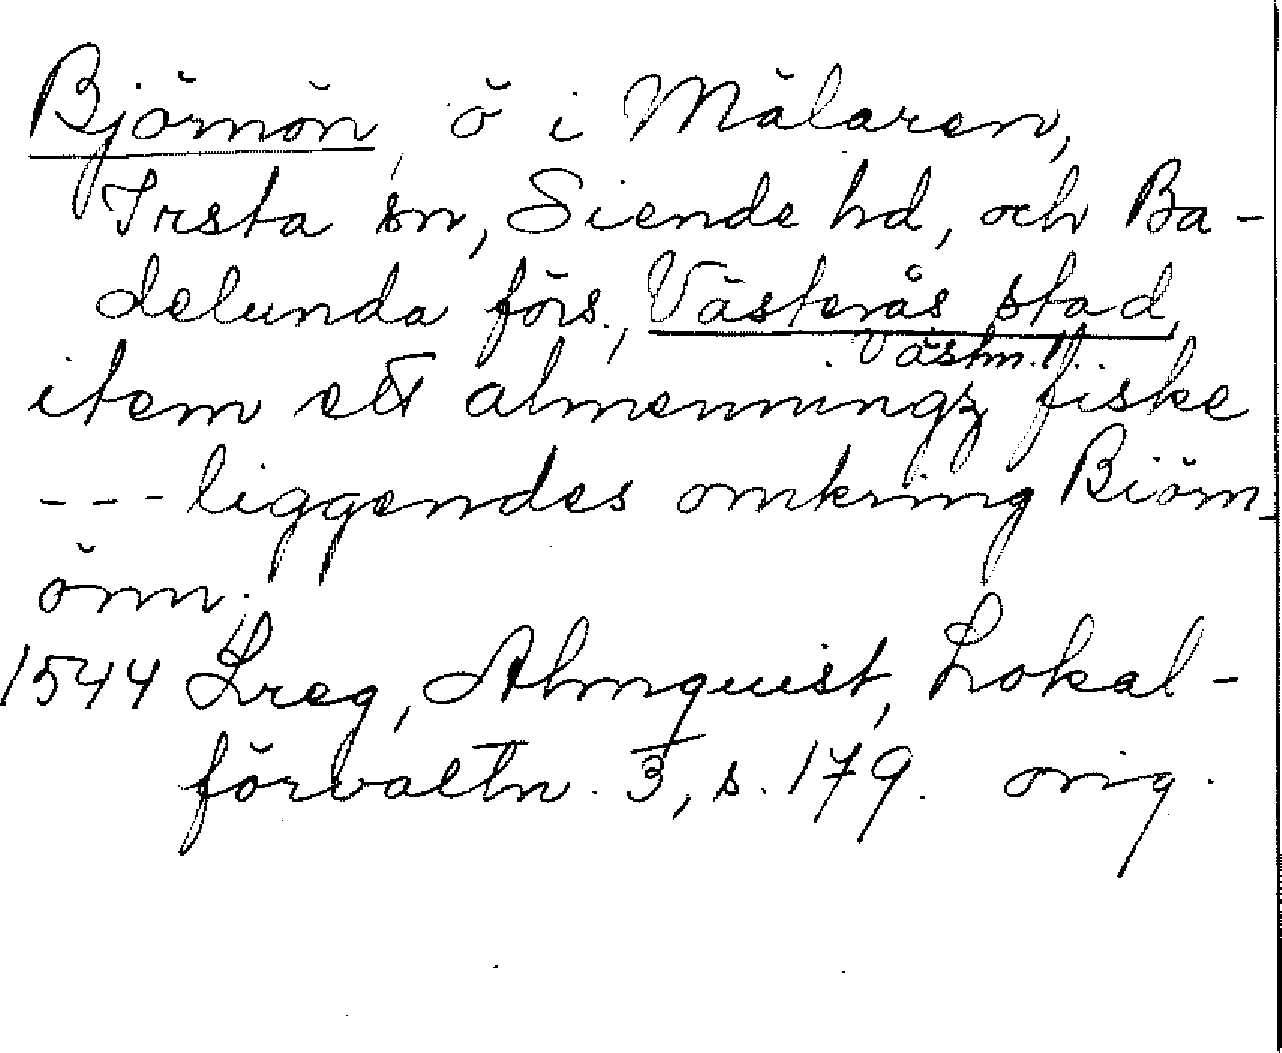 Björnön, ö i Mälaren,
Irsta sn, Siende hd, och Ba-
delunda förs., Västerås stad,
Västm. l.
item ett almenningz fiske
--- liggendes omkring Biörn-
önn.
1544 Lreg, Almquist, Lokal-
förvaltn. 3, s. 179. orig.